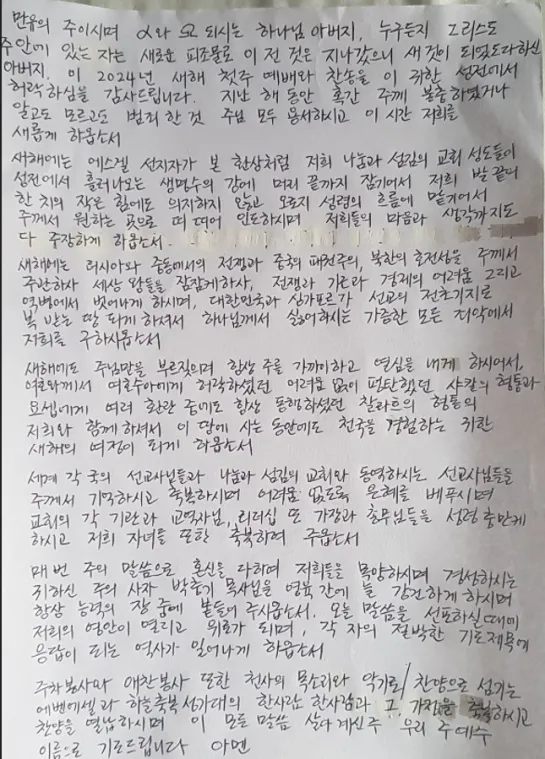 만유의 주이시며 α와 Ω 되시는 하나님 아버지, 누구든지 그리스도
주 안에 있는 자는 새로운 피조물로 이전 것은 지나갔으니 새 것이 되었도다 하신
아버지. 이 2024년 새해 첫주 예배와 찬송을 이 귀한 성전에서
허락하심을 감사드립니다. 지난 해 동안 혹간 주께 불충하였거나
알고도 모르고도 범죄한 것 주님 모두 용서하시고 이 시간 저희를
새롭게 하옵소서
새해에는 에스겔 선지자가 본 환상처럼 저희 나눔과 섬김의 교회 성도들이
성전에서 흘러나오는 생명수의 강에 머리 끝까지 잠기어서 저희 발 끝의
한 치의 작은 힘에도 의지하지 않고 오로지 성령의 흐름에 맡기어서
주께서 원하는 곳으로 떠 떠어 인도하시며 저희들의 마음과 생각까지도
다 주장하게 하옵소서.
새해에는 러시아와 중동에서의 전쟁과 중국의 패권주의, 북한의 호전성을 주께서
주관하사 세상 왕들을 잠잠케하사, 전쟁과 기근과 경제의 어려움 그리고
역병에서 벗어나게 하시며, 대한민국과 싱가포르가 선교의 전초기지로
복 받는 땅 되게 하셔서 하나님께서 싫어하시는 가증한 모든 죄악에서
저희를 구하시옵소서
새해에도 주님만을 부르짖으며 항상 주를 가까이하고 열심을 내게 하시어서,
여호와께서 여호수아에게 허락하셨던 어려움 없이 평탄했던 샤칼의 형통과
요셉에게 여러 환란 중에도 항상 동행하셨던 찰라흐의 형통의
저희와 함께 하셔서 이 땅에 사는 동안에도 천국을 경험하는 귀한
새해의 여정이 되게 하옵소서
세계 각 국의 선교사님들과 나눔과 섬김의 교회와 동역하시는 선교사님들을
주께서 기억하시고 축복하시며 어려움 없도록 은혜를 베푸시며
교회의 각 기관과 교역자님, 리더십 또 가장과 총무님들을 성령 충만케
하시고 저희 자녀들 또한 축복하여 주옵소서
매 번 주의 말씀으로 혼신을 다하며 저희들을 목양하시며 경성하시는
귀하신 주의 사자 박훈기 목사님을 영육간에 늘 강건하게 하시며
항상 능력의 장 중에 붙들어 주시옵소서. 오늘 말씀을 선포하실 때에
저희의 영안이 열리고 위로가 되며, 각 자의 절박한 기도제목에
응답이 되는 역사가 일어나게 하옵소서
주차봉사와 애찬봉사 또한 천사의 목소리와 악기로/찬양으로 섬기는
에벤에셀과 하늘축복 성가대의 한사람 한사람과 그 가정을 축복하시고
찬양을 열납하시며 이 모든 말씀 살아 계신 주 우리 주 예수
이름으로 기도드립니다 아멘